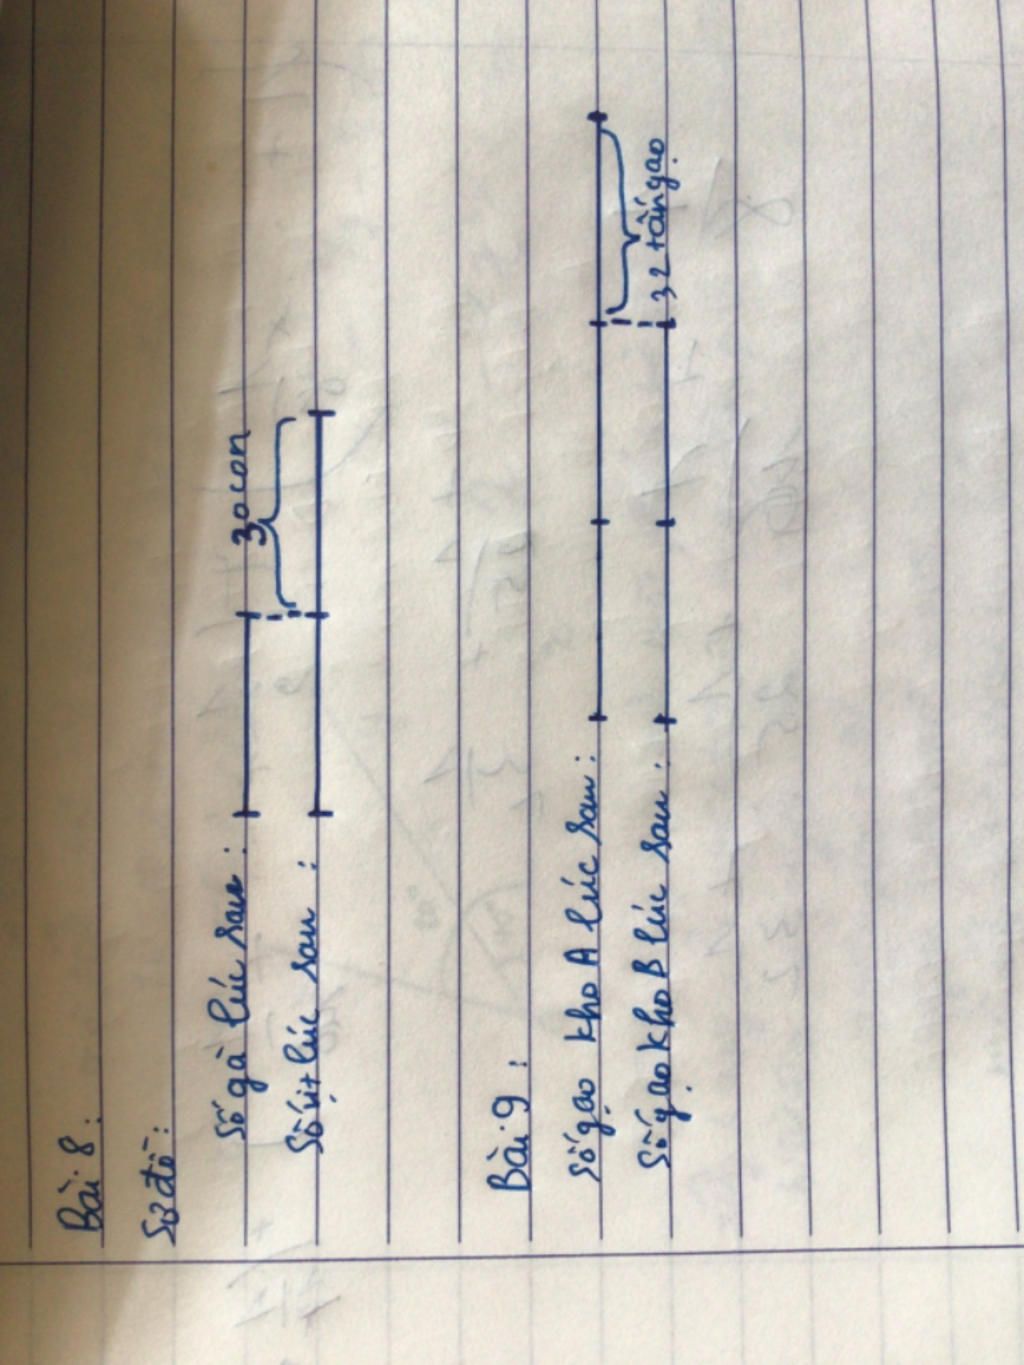 Bài 8:
Sơ đồ:
30 con
Số gà lúc sau:
Số vịt lúc sau:
Bài 9:
Số gạo kho A lúc sau:
Số gạo kho B lúc sau:
32 tấn gạo